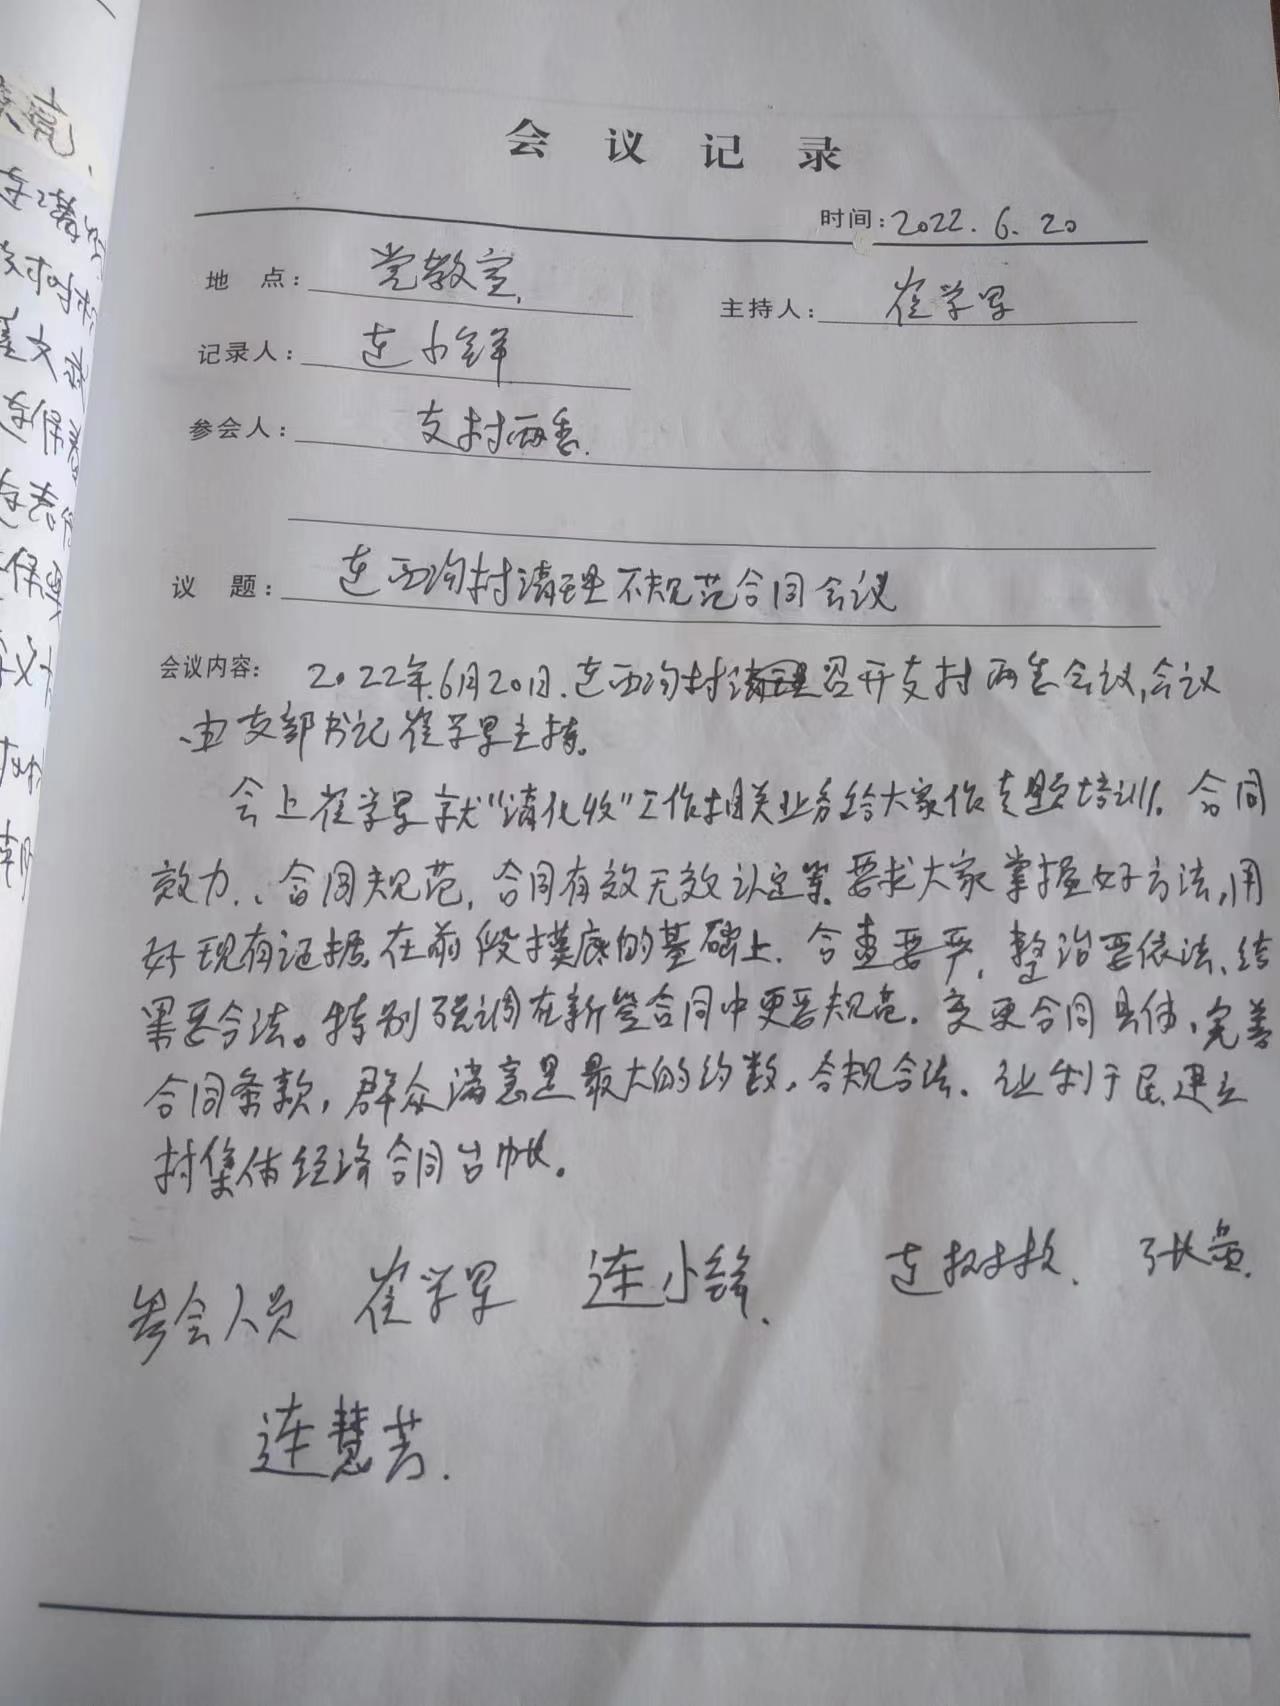 会议记录
时间:2022.6.20
地 点: 党教室.
主持人: 崔学军
记录人: 连小锋
参会人: 支村两委.
议 题: 连西沟村清理不规范合同会议
会议内容: 2022年6月20日.连西沟村召开支村两委会议,会议
由支部书记崔学军主持。
会上崔学军就“清化收”工作相关业务给大家作专题培训.合同
效力.、合同规范,合同有效无效认定等.要求大家掌握好方法,用
好现有证据.在前段摸底的基础上.合查要严,整治要依法、结
果要合法。特别强调在新签合同中更要规范.变更合同具体,完善
合同条款,群众满意是最大的约数,合规合法.让利于民.建立
村集体经济合同台帐。
参会人员 崔学军 连小锋. 连树
连慧芳.
连